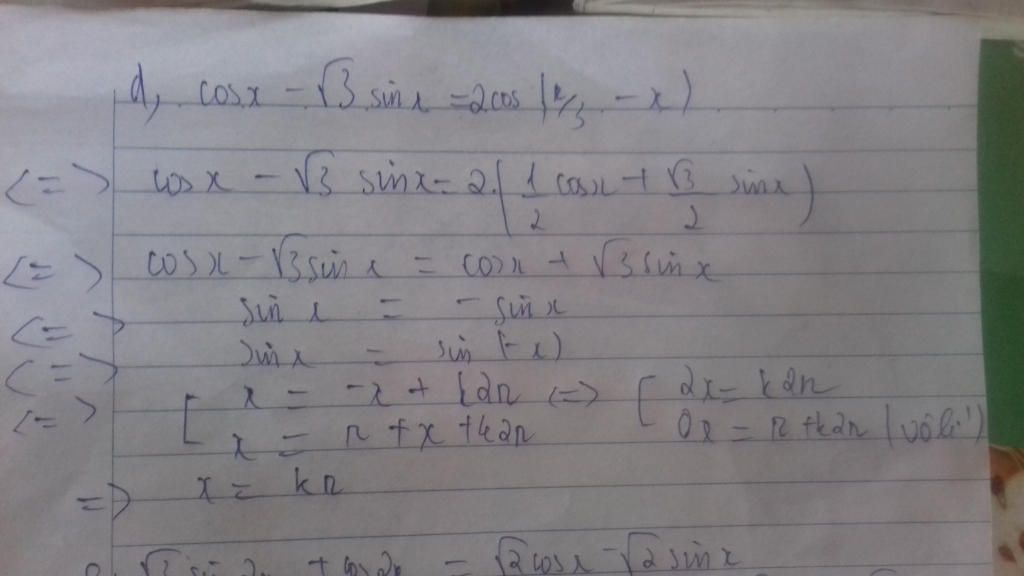 d, cosx - √3 sinx = 2cos (π/3 - x)
<=> cosx - √3 sinx = 2.(1/2 cosx + √3/2 sinx)
<=> cosx - √3 sinx = cosx + √3 sinx
<=> sinx = - sinx
<=> sinx = sin (-x)
<=> [ x = -x + k2π <=> [ 2x = k2π
x = π + x + k2π 0x = π + k2π (vô lí)
=> x = kπ
√3 sin2x + cos2x = √2 cosx - √2 sinx